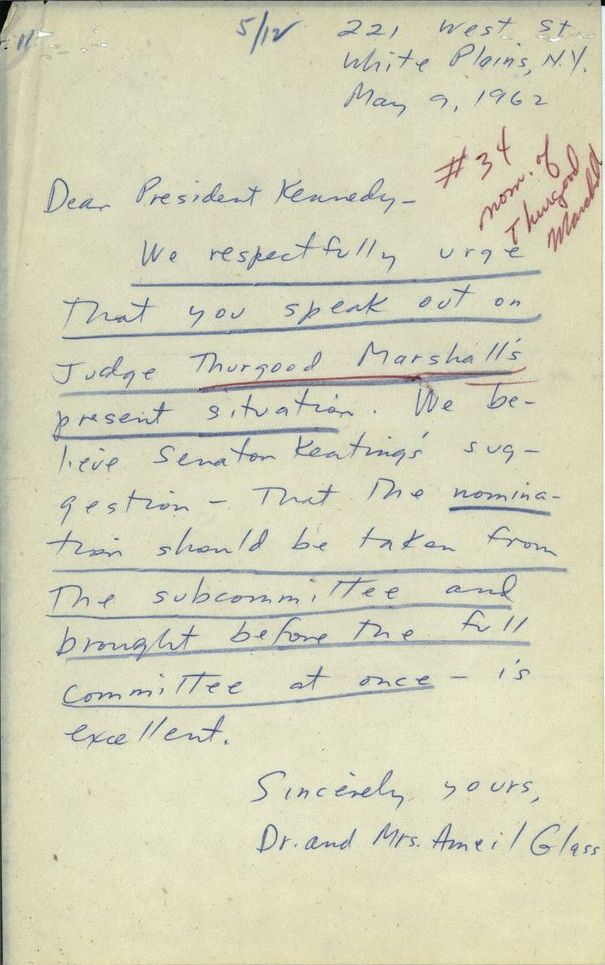 5/12
221 West St.
White Plains, N.Y.
May 9, 1962
#34
nom. of
Thurgood
Marshall
Dear President Kennedy-
We respectfully urge
that you speak out on
Judge Thurgood Marshall's
present situation. We be-
lieve Senator Keating's sug-
gestion - that the nomina-
tion should be taken from
the subcommittee and
brought before the full
committee at once - is
excellent.
Sincerely yours,
Dr. and Mrs. Ameil Glass